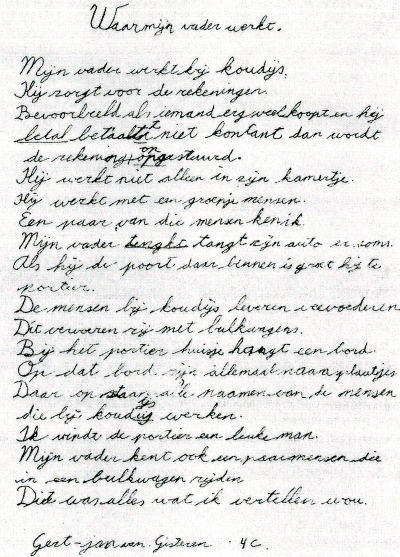 Waar mijn vader werkt.
Mijn vader werkt bij koudijs.
Hij zorgt voor de rekeningen.
Bevoorbeeld als iemand erg veel koopt en hij
betal betaalt niet kontant dan wordt
de rekening opgestuurd.
Hij werkt niet alleen in zijn kamertje.
Hij werkt met een groepje mensen.
Een paar van die mensen ken ik.
Mijn vader tangt zijn auto er soms.
Als hij de poort daar binnen is groet hij te
portier.
De mensen bij koudijs leveren veevoederen.
Dit vervoren zij met bulkwagens.
Bij het portier huisje hangt een bord.
Op dat bord zijn allemaal naamplaatjes
Daar op staan alle naamen van de mensen
die bij koudijs werken.
Ik vindt de portier een leuke man.
Mijn vader kent ook een paar mensen die
in een bulkwagen rijden
Dit was alles wat ik vertellen wou.
Gert-jan van Gisteren. 4C.